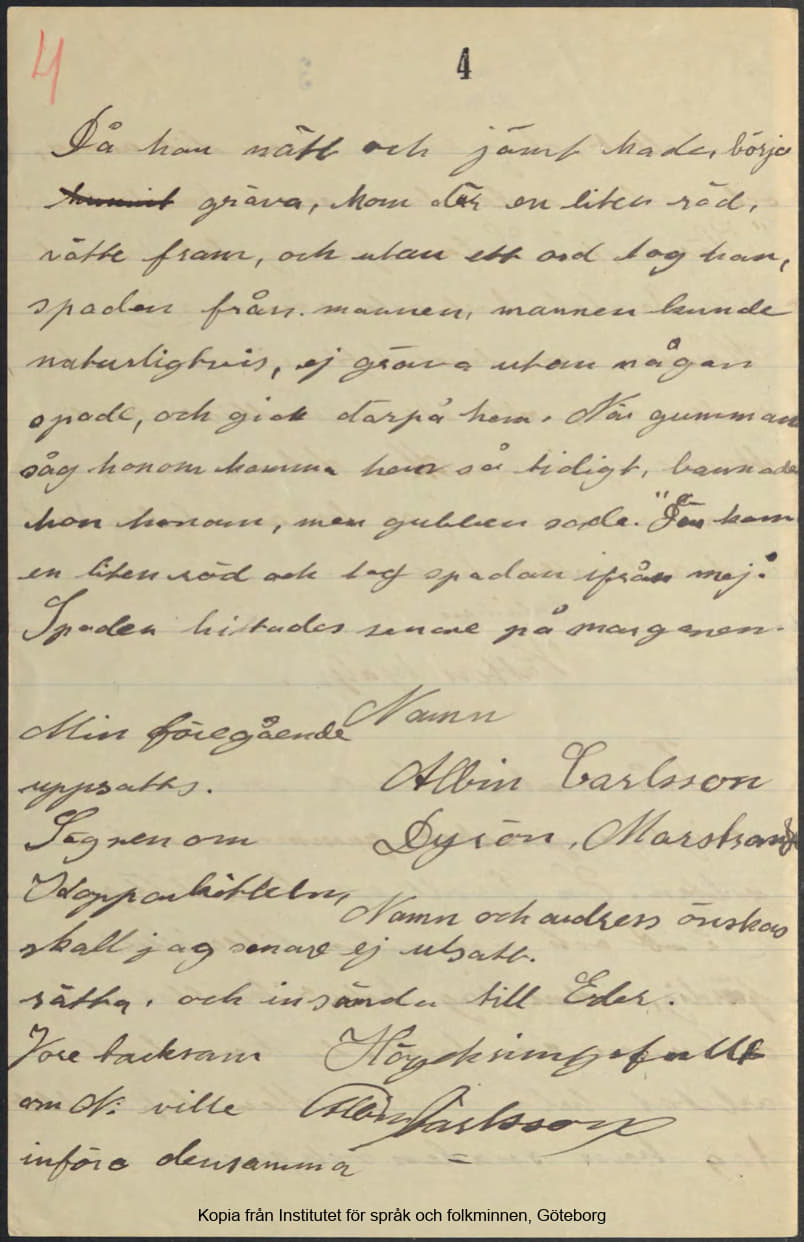 4
4
Då han nätt och jämt hade, börja
hunnit gräva, kom där en liten röd,
nätte fram, och utan ett ord tog han,
spaden från. mannen, mannen kunde
naturligtvis, ej gräva utan någon
spade, och gick därpå hem. När gumman
såg honom komma hem så tidigt, bannade
hon honom, men gubben sade. "Den kom
en liten röd och tog spadan ifrån mej."
Spaden hittades senare på morgonen.
Min föregående
uppsatts.
Sägnen om
Kopparkitteln,
skall jag senare
rätta, och insända till Eder.
Vore tacksam
om Ni ville
införa densamma
Namn
Albin Carlsson
Dyrön, Marstrand
Namn och andress önskas
ej utsatt.
Högaktningsfullt
Albin Carlsson
Kopia från Institutet för språk och folkminnen, Göteborg